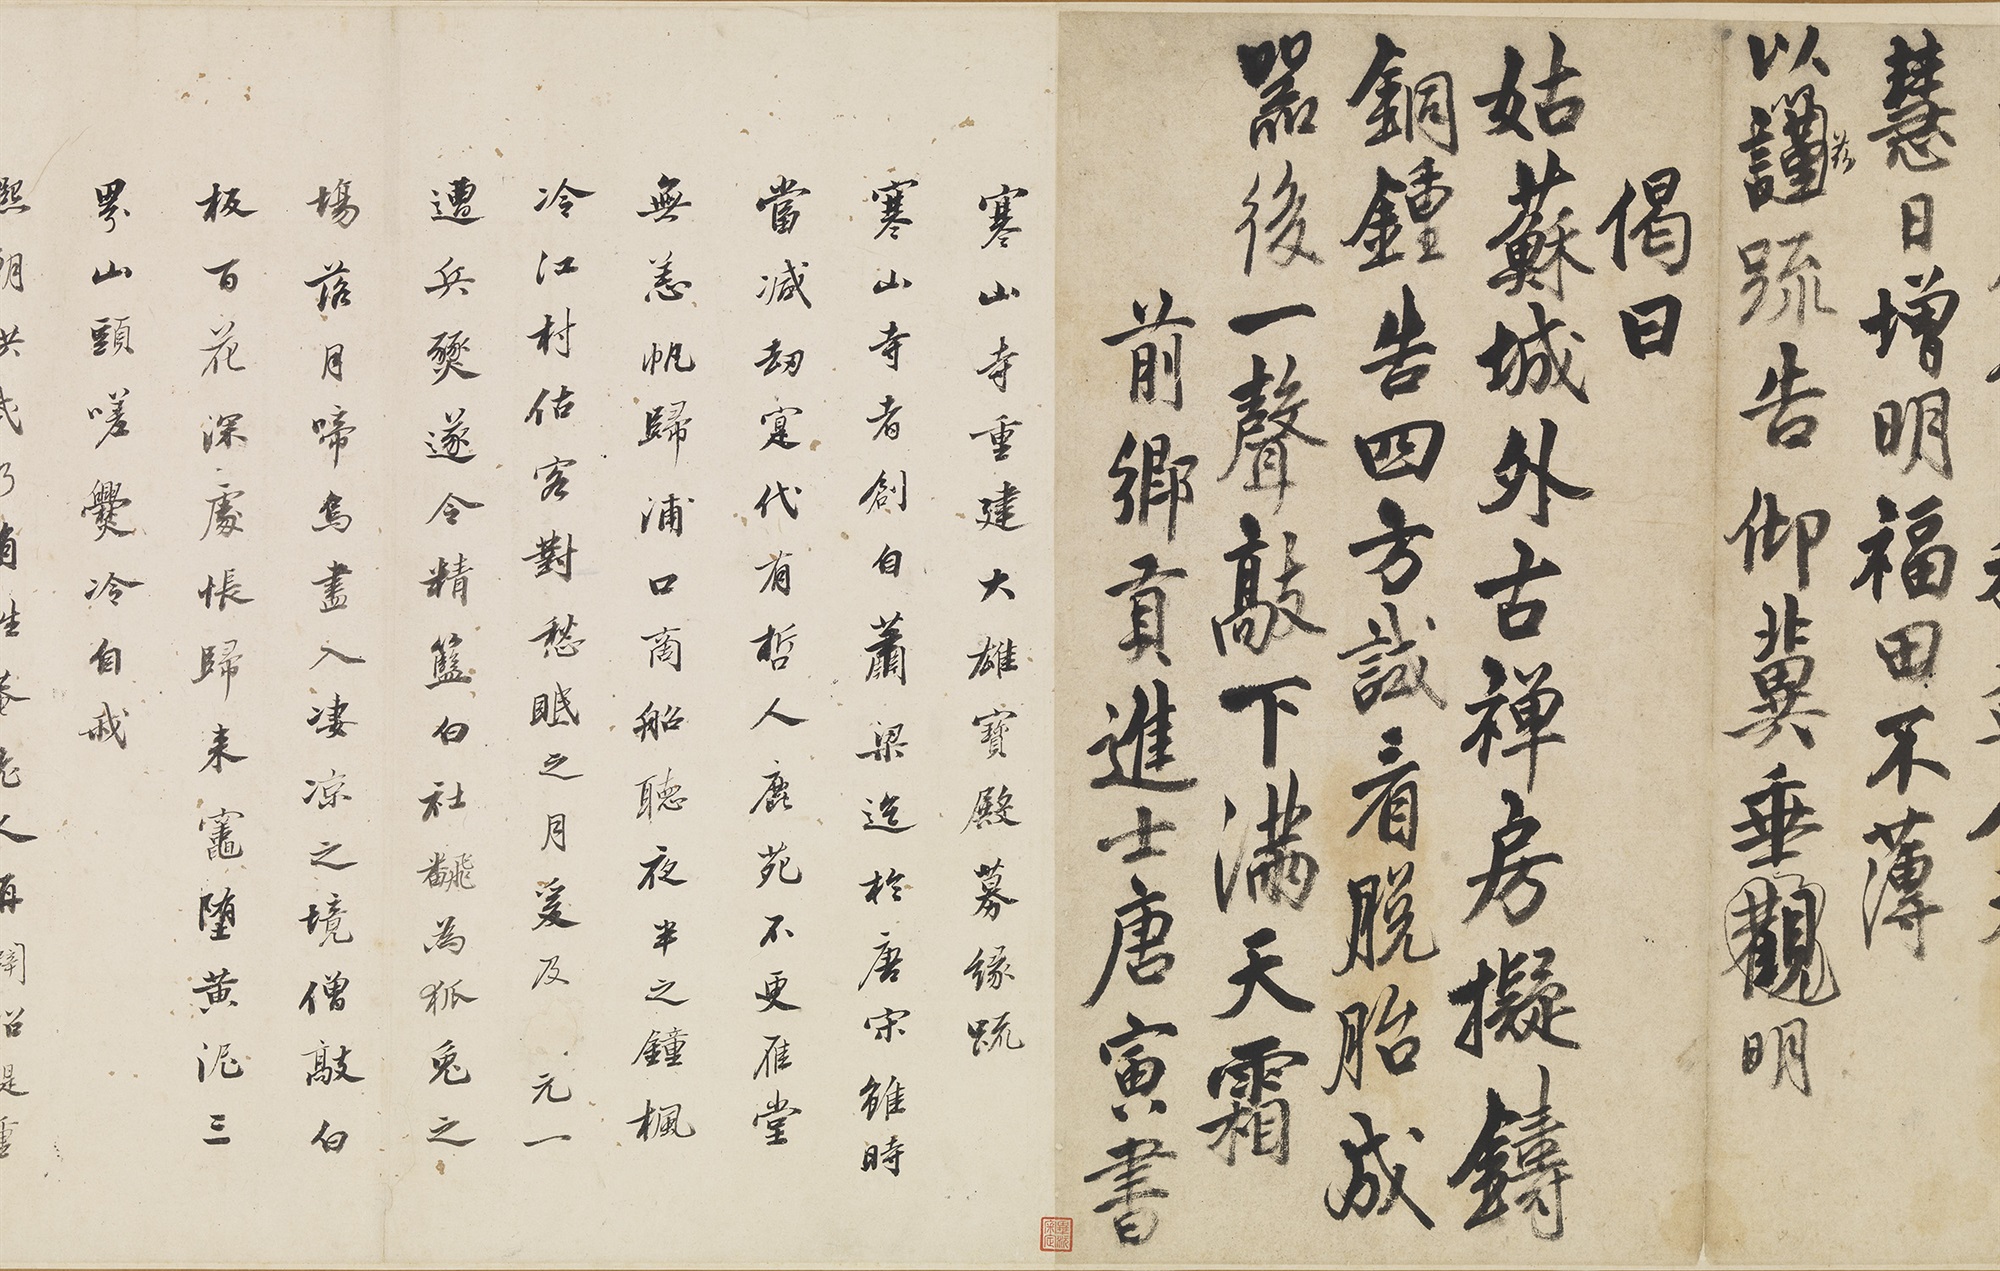 慧日增明福田不薄
以謹疏告仰兾垂觀明
茲
偈曰
姑蘇城外古禅房擬鑄
銅鍾告四方試看脱胎成
噐後一聲敲下满天霜
前鄉貢進士唐寅書
寒山寺重建大雄寳殿募緣䟽
寒山寺者創自蕭梁迄於唐宋雖時
當減劫寔代有哲人鹿苑不更雁堂
無恙帆歸浦口商船聽夜半之鐘楓
冷江村估客對愁眠之月爰及元一
遭兵燹遂令精籃白社翻為狐兎之
塲落月啼烏盡入凄凉之境僧敲白
板百花深處悵歸来竈堕黄泥三
㽬山頭嗟爨冷自